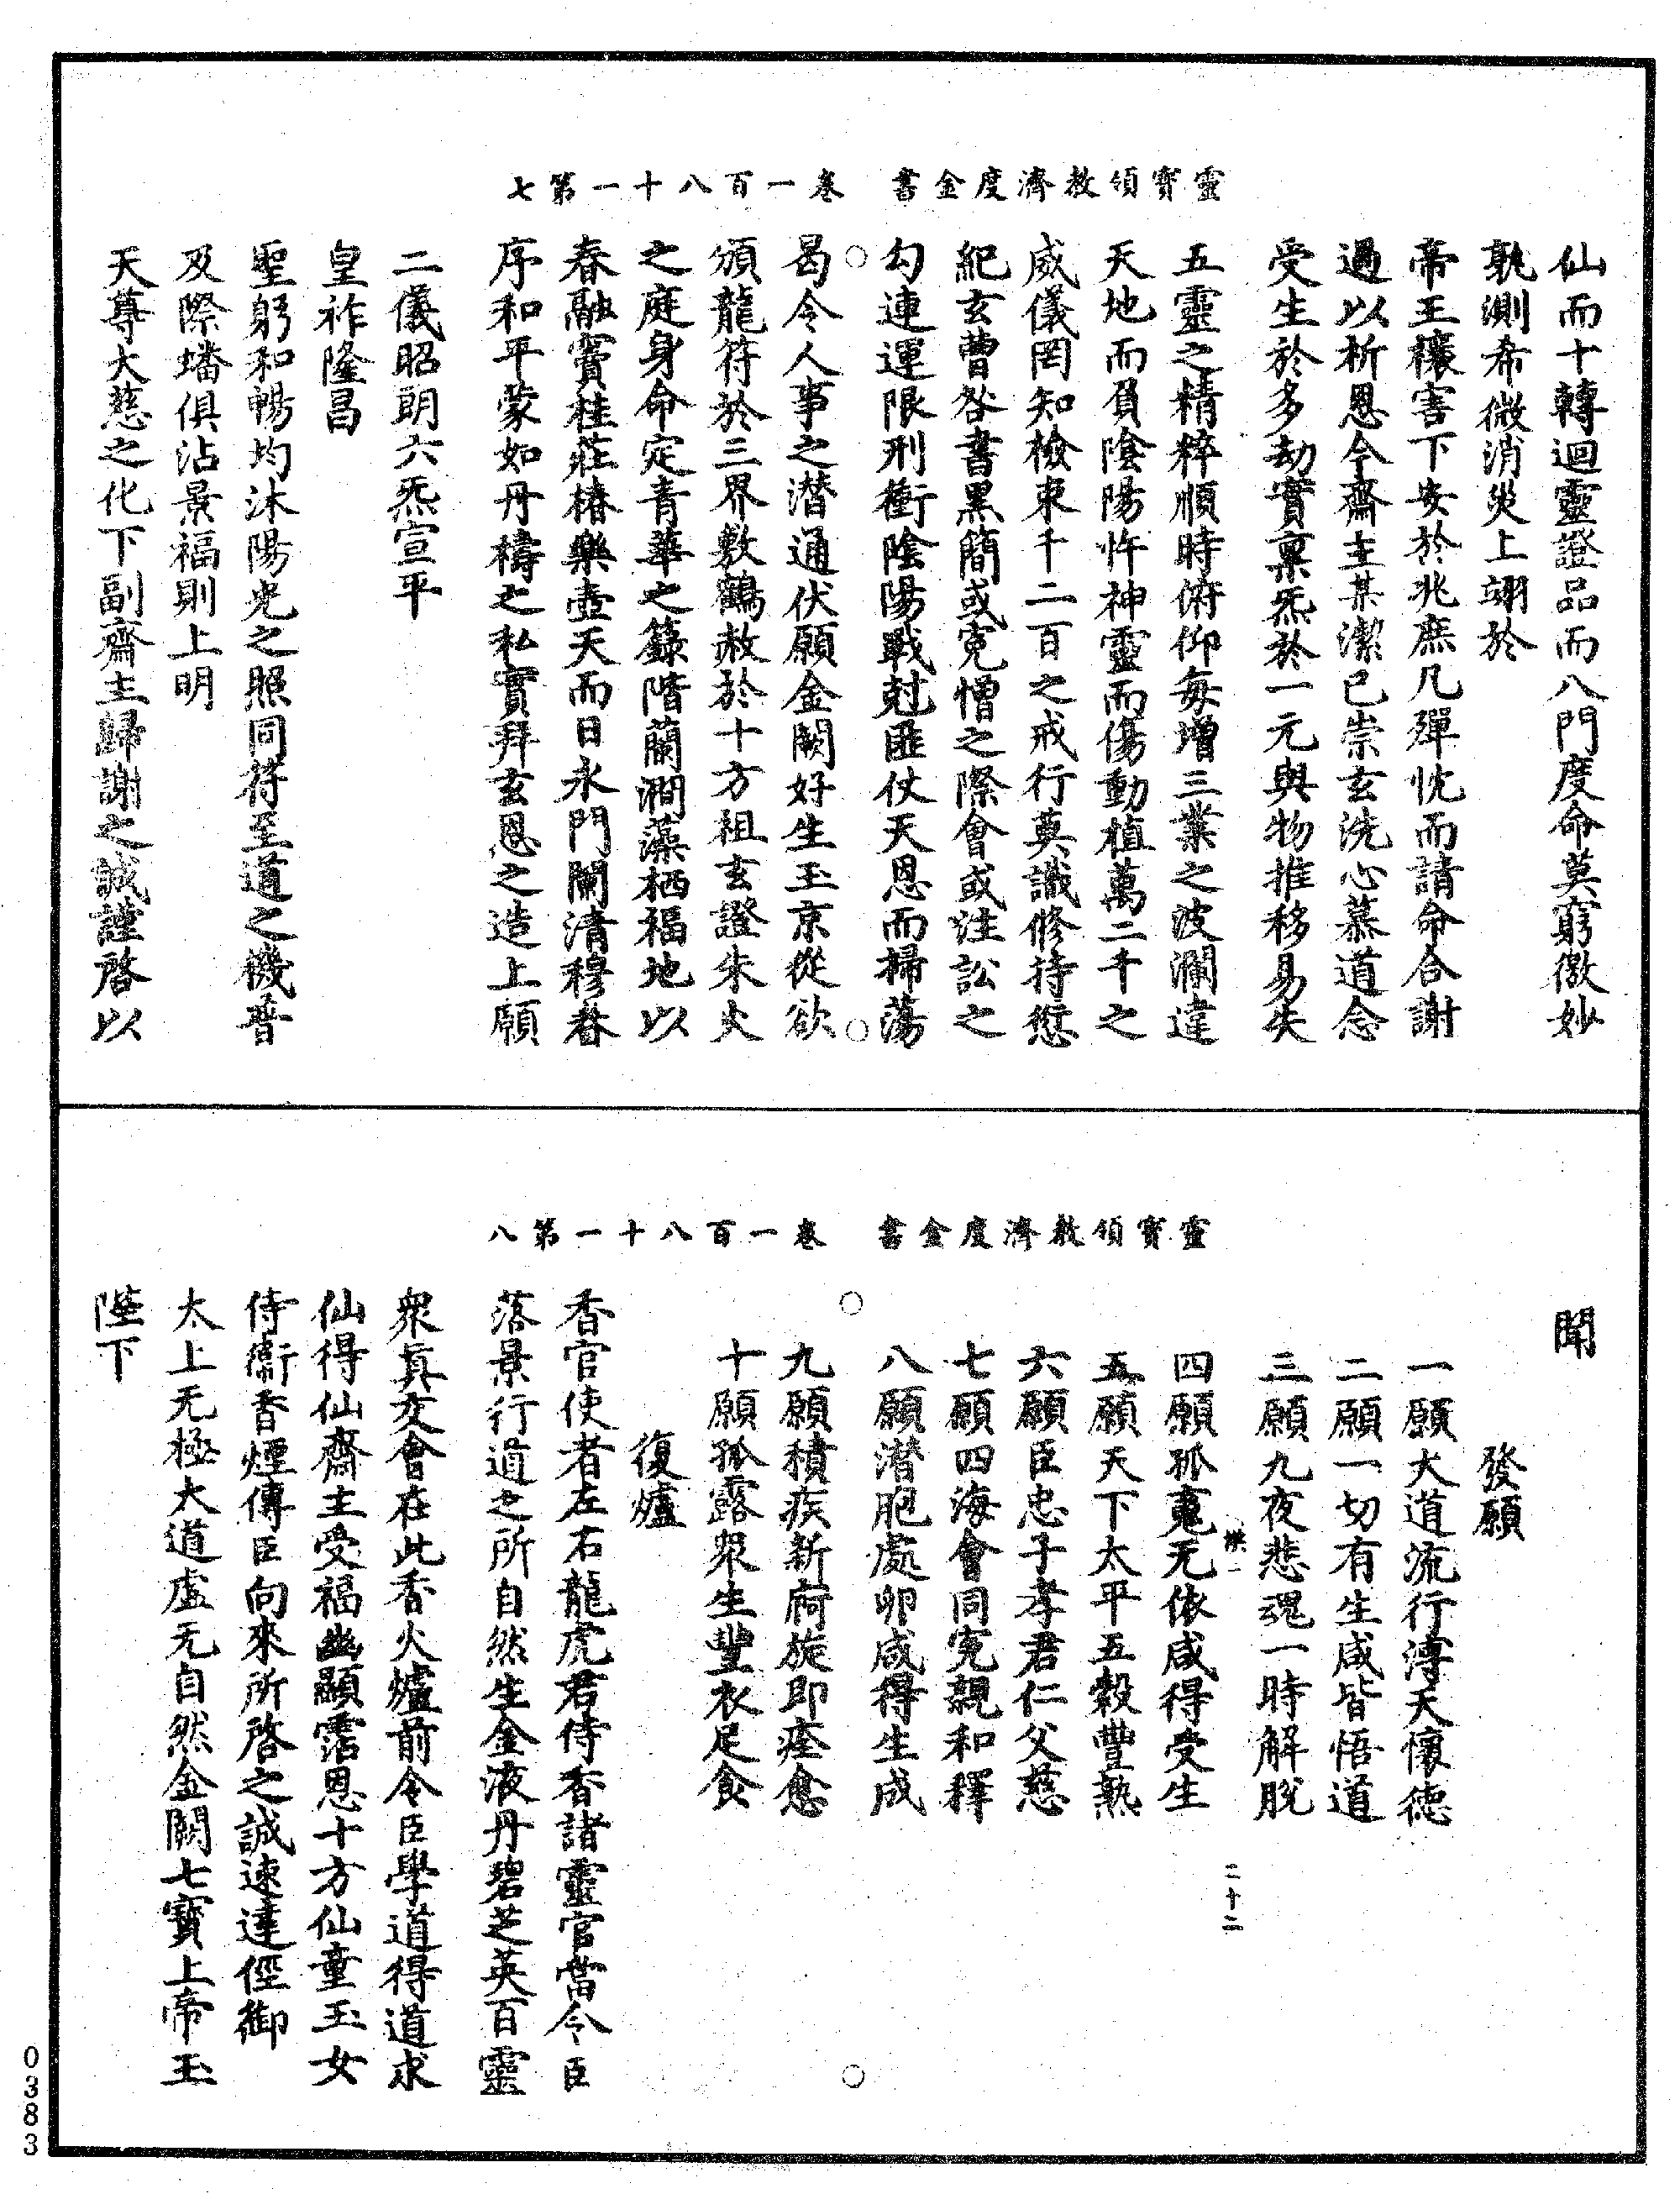 靈寶領教濟度金書　卷一百八十一第七
仙而十轉迴靈證品而八門度命莫窮徼妙
孰測希微消災上翊於
帝王禳害下安於兆庶凡殫忱而請命合謝
過以祈恩今齋主某潔己崇玄洗心慕道念
受生於多劫實稟炁於一元與物推移易失
五靈之精粹順時俯仰每增三業之波瀾違
天地而負陰陽忤神靈而傷動植萬二千之
威儀罔知檢束千二百之戒行莫識脩持愆
紀玄曹咎書黑簡或寃憎之際會或注訟之
勾連運限刑衝陰陽戰尅匪仗天恩而掃蕩
曷令人事之潜通伏願金闕好生玉京從欲
頒龍符於三界敷鶴赦於十方祖玄證朱火
之庭身命定青華之籙階蘭澗藻栖福地以
春融竇桂莊椿樂壼天而日永門闌清穆眷
序和平蒙如丹禱之私實拜玄恩之造上願
二儀昭朗六炁宣平
皇祚隆昌
聖躬和暢均沐陽光之照同符至道之機普
及際蟠俱沾景福則上明
天尊大慈之化下副齋主歸謝之誠謹啓以
靈寶領教濟度金書　卷一百八十一第八
聞
發願
一願大道流行溥天懷德
二願一切有生咸皆悟道
三願九夜悲魂一時解脫
二十二
四願孤䰟无依咸得受生
五願天下太平五穀豐熟
六願臣忠子孝君仁父慈
七願四海會同寃親和釋
八願潜胞處卵咸得生成
九願積疾新痾旋即痊愈
十願孤露衆生豐衣足食
復爐
香官使者左右龍虎君侍香諸靈官當令臣
落景行道之所自然生金液丹碧芝英百靈
衆眞交會在此香火爐前令臣學道得道求
仙得仙齋主受福幽顯霑恩十方仙童玉女
侍衞香煙傳臣向來所啓之誠速達徑御
太上无極大道虛无自然金闕七寶上帝玉
陛下
0383